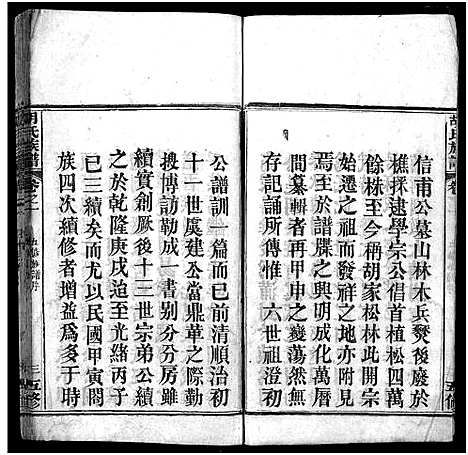 胡氏族譜
卷
信甫公墓山林木兵燹後廢於
樵採逮學宗公倡首植松四十
餘株至今稱胡家松林此開宗
遷之祖而發祥之地亦附見
於此吾譜牒之興明成化萬厯
間纂輯者再甲申蕩然所惟有
存記誦所傳惟 六世祖澄初
公譜訓一篇而已前清順治初
十一世虞建公當鼎革之際勤
搜博訪勒成一書别分分别
續實創厥後十三世宗弟公續
之於乾隆庚戌迨至光緒丙子
已三續矣尤以民國甲寅闔
族四次續修者增益爲多于時
胡氏族譜
卷之一
三
五修